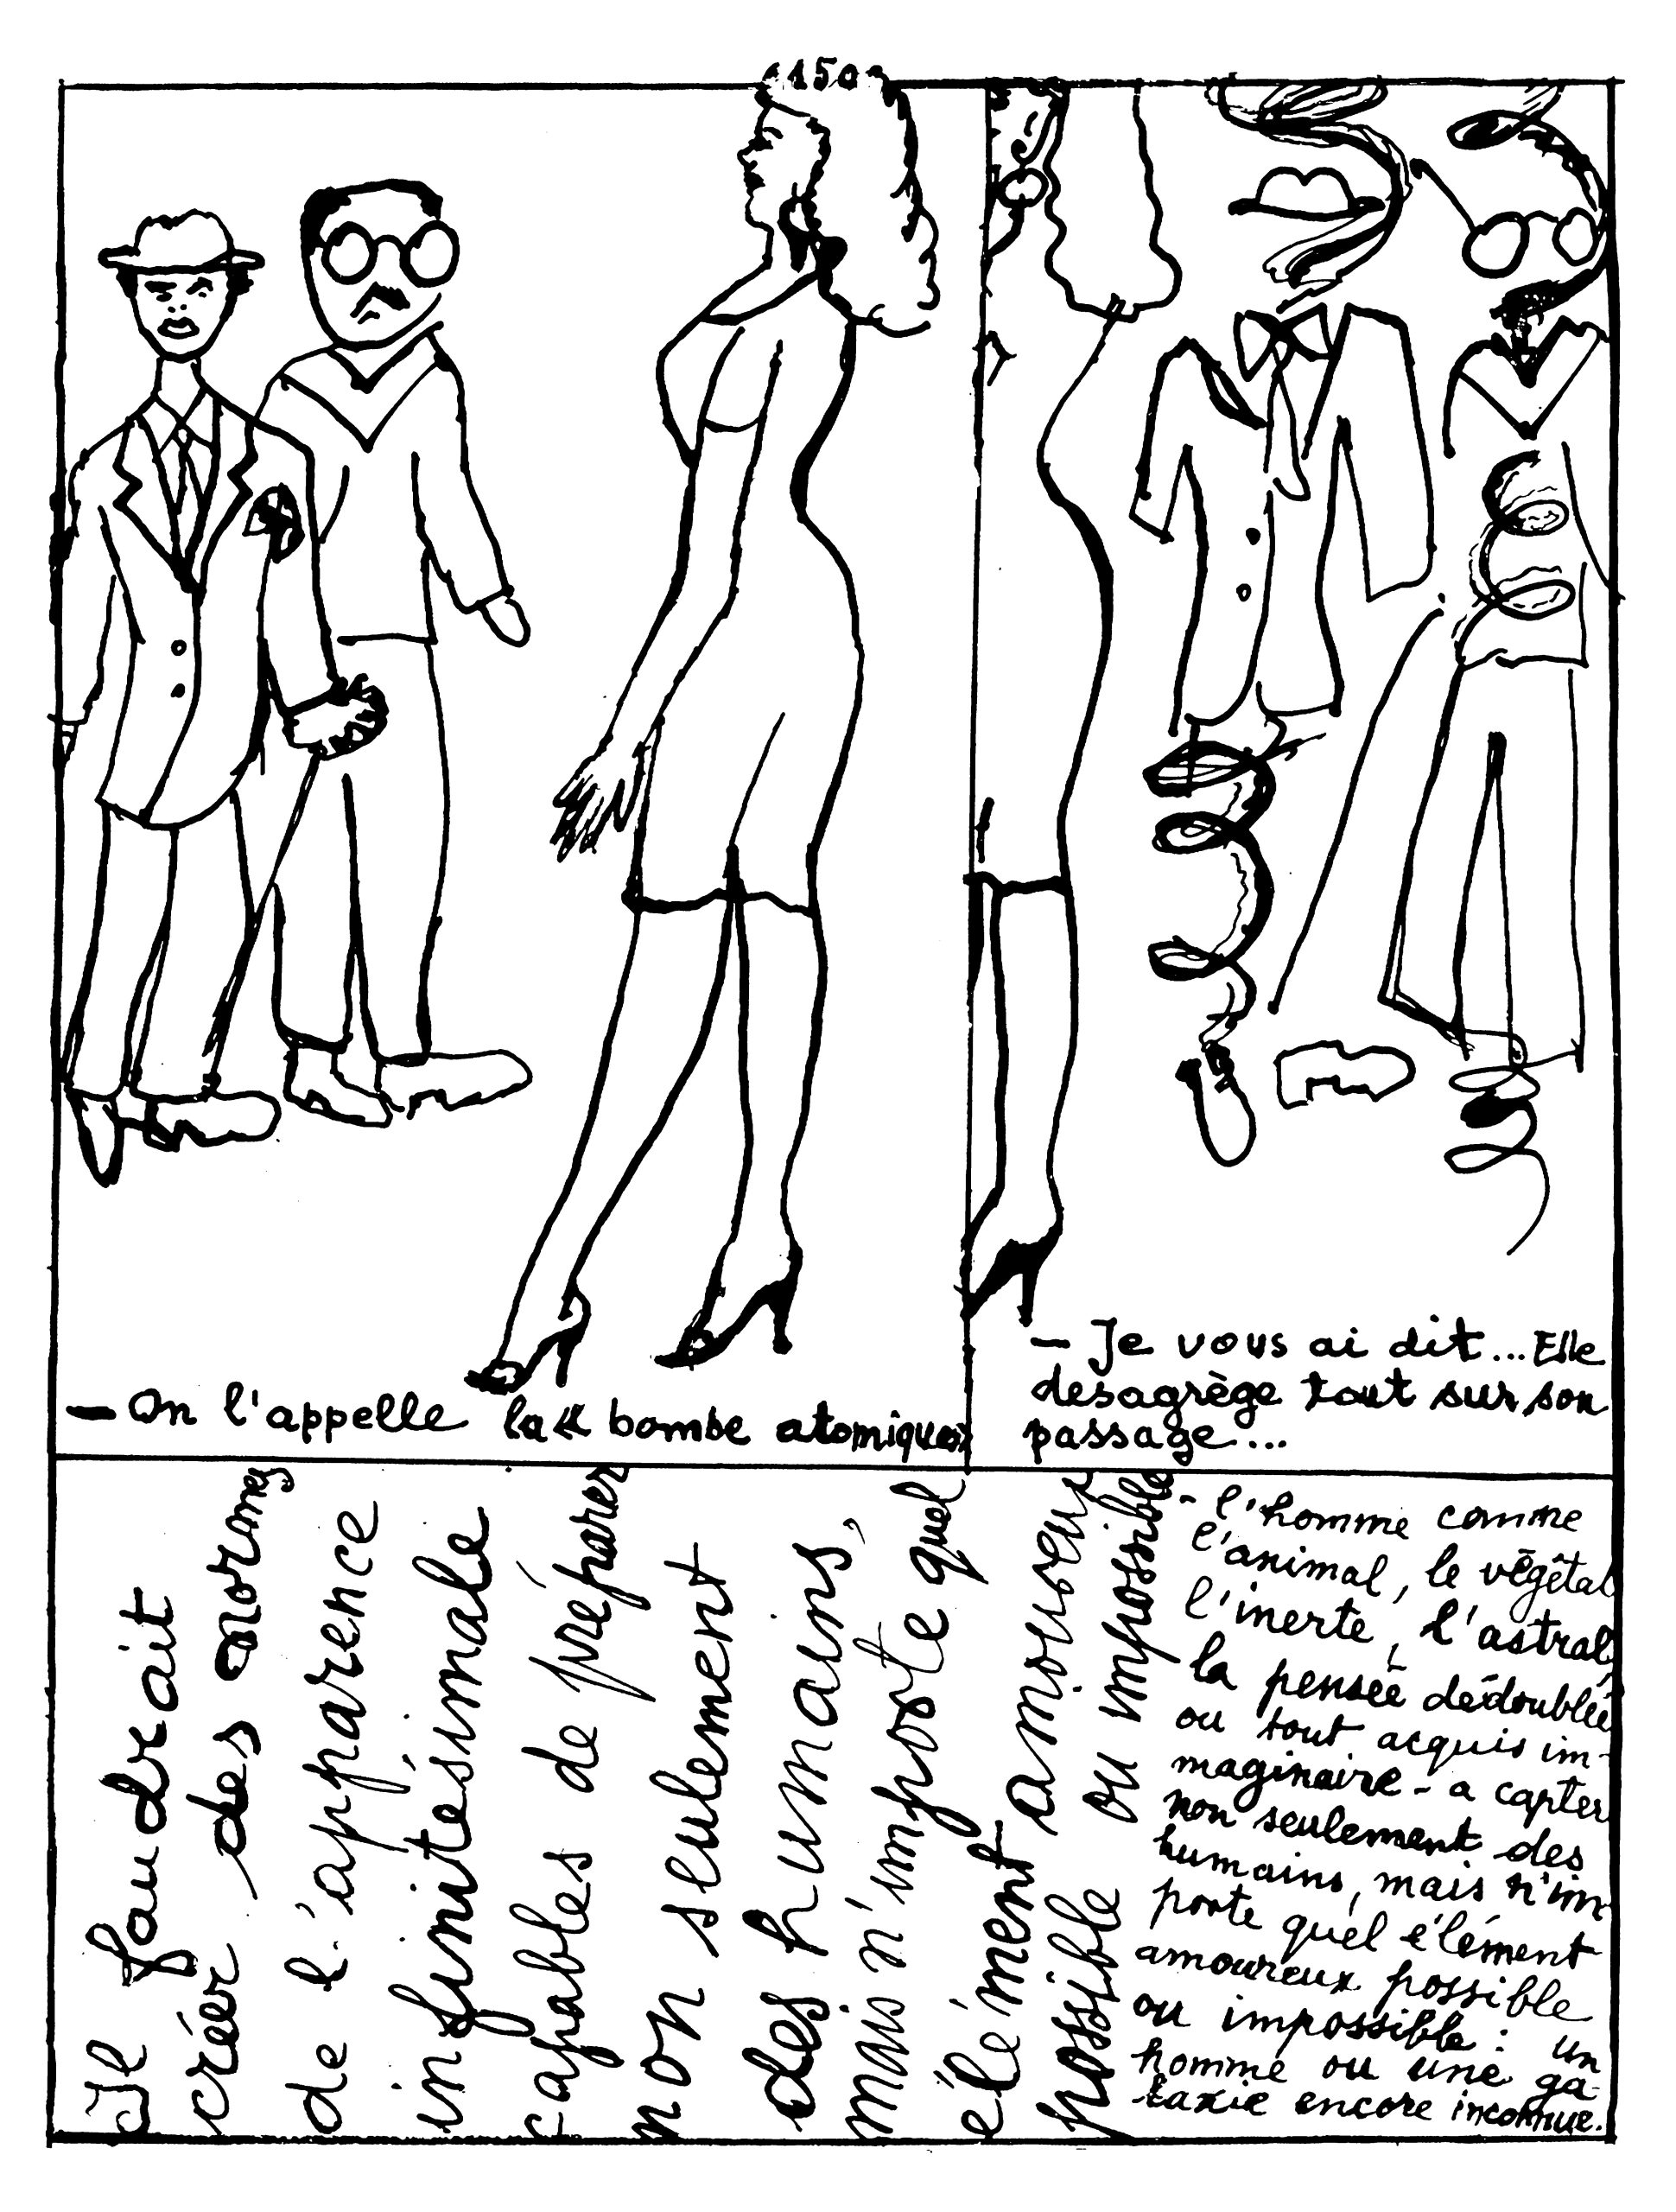 150
— On l'appelle la « bombe atomique»
— Je vous ai dit... Elle
desagrège tout sur son
passage...
Il faudrait
créer des normes
de l'apparence
infinitésimale
capables de préparer
non seulement
des humains,
mais n'importe quel
élément amoureux
possible ou impossible
- l'homme comme
l'animal, le végétal
l'inerte, l'astral,
la pensée dédoublée
ou tout acquis im-
maginaire - a capter
non seulement des
humains, mais n'im-
porte quel élément
amoureux possible
ou impossible : un
homme ou une ga-
laxie encore inconnue.